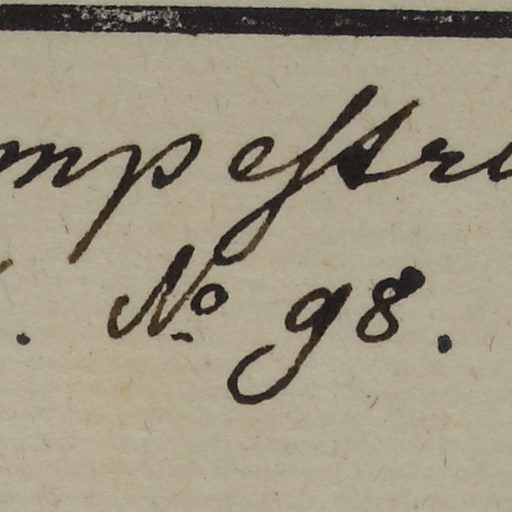 mpestri
. No 98.